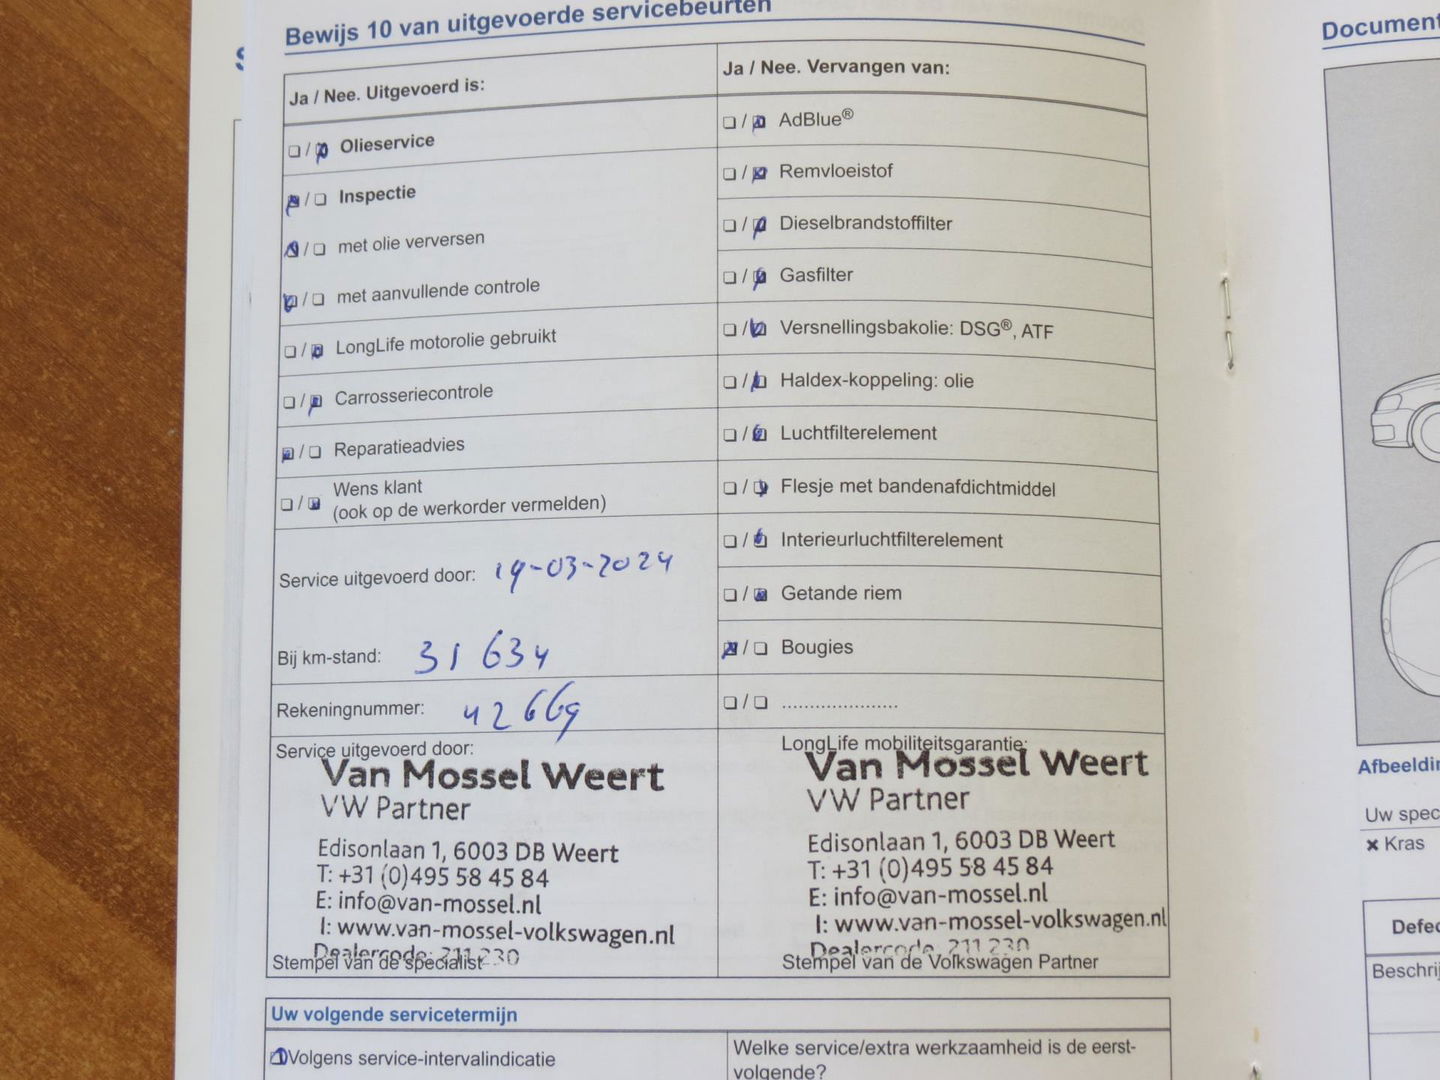 Bewijs 10 van uitgevoerde servicebeurten
Ja / Nee. Uitgevoerd is:
Olieservice
Inspectie
met olie verversen
met aanvullende controle
LongLife motorolie gebruikt
Carrosseriecontrole
Reparatieadvies
Wens klant
(ook op de werkorder vermelden)
Service uitgevoerd door: 19-03-2024
Bij km-stand: 31 634
Rekeningnummer: 42669
Service uitgevoerd door:
Van Mossel Weert
VW Partner
Edisonlaan 1, 6003 DB Weert
T: +31 (0)495 58 45 84
E: info@van-mossel.nl
I: www.van-mossel-volkswagen.nl
Dealercode: 211 230
Stempel van de specialist
Ja / Nee. Vervangen van:
AdBlue®
Remvloeistof
Dieselbrandstoffilter
Gasfilter
Versnellingsbakolie: DSG®, ATF
Haldex-koppeling: olie
Luchtfilterelement
Flesje met bandenafdichtmiddel
Interieurluchtfilterelement
Getande riem
Bougies
.....................
LongLife mobiliteitsgarantie:
Van Mossel Weert
VW Partner
Edisonlaan 1, 6003 DB Weert
T: +31 (0)495 58 45 84
E: info@van-mossel.nl
I: www.van-mossel-volkswagen.nl
Dealercode: 211 230
Stempel van de Volkswagen Partner
Uw volgende servicetermijn
Volgens service-intervalindicatie
Welke service/extra werkzaamheid is de eerst-
volgende?
Document
Afbeeldin
Uw spec
× Kras
Defec
Beschrij